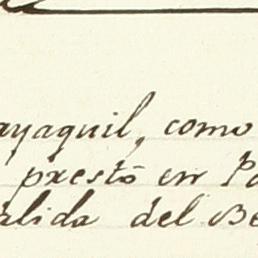 ayaquil, como
prestó en Pa
alida del Be